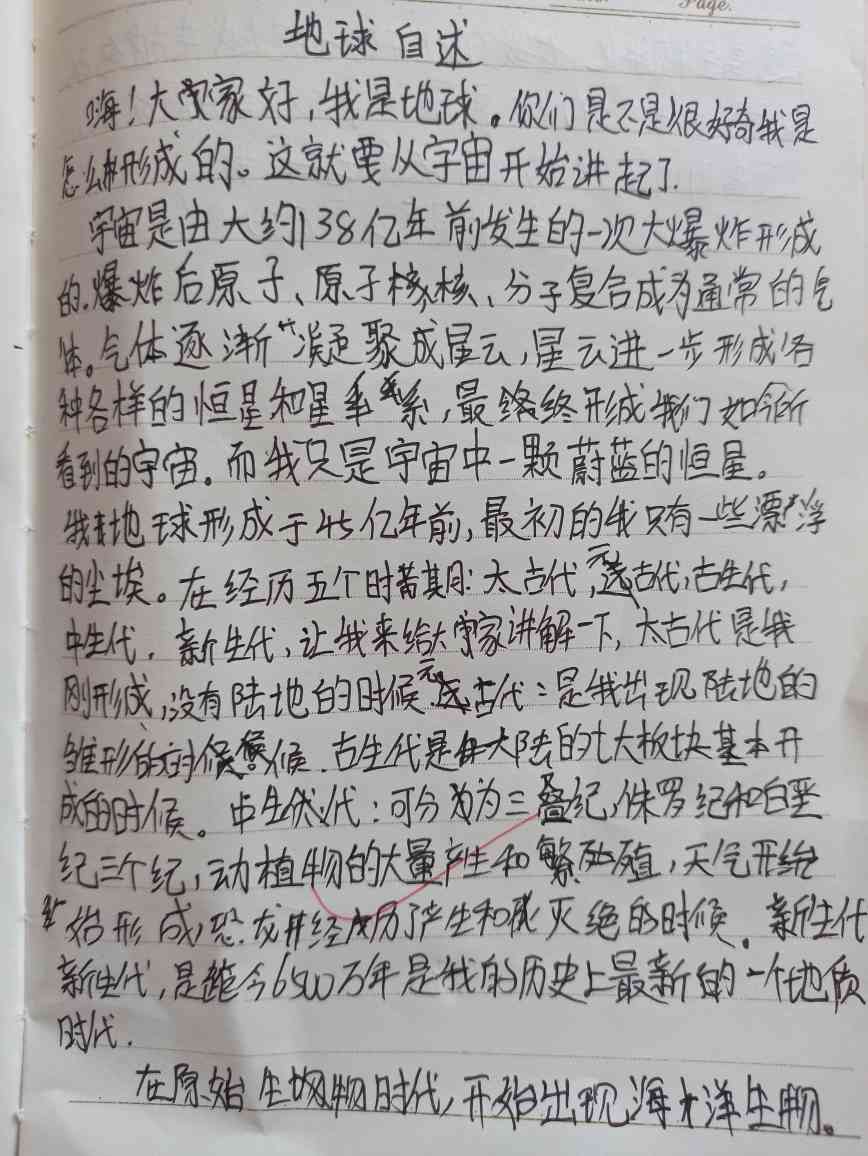 Page.
地球自述
嗨!大家好,我是地球。你们是不是很好奇我是
怎么样形成的。这就要从宇宙开始讲起了.
宇宙是由大约138亿年前发生的一次大爆炸形成
的.爆炸后原子、原子核、分子复合成为通常的气
体。气体逐渐凝聚成星云,星云进一步形成各
种各样的恒星和星系,最终形成我们如今所
看到的宇宙。而我只是宇宙中一颗蔚蓝的恒星。
我地球形成于45亿年前,最初的我只有一些漂浮
的尘埃。在经历五个时期:太古代,元古代,古生代,
中生代,新生代,让我来给大家讲解一下,太古代是我
刚形成,没有陆地的时候元古代:是我出现陆地的
雏形的时候.古生代是大陆的七大板块基本开
成的时候。中生代:可分为三叠纪,侏罗纪和白垩
纪三个纪,动植物的大量产生和繁殖,天气开始
形成,恐龙并经历了产生和灭绝的时候.新生代
新生代,是距今6500万年是我的历史上最新的一个地质
时代.
在原始生物时代,开始出现海洋生物。